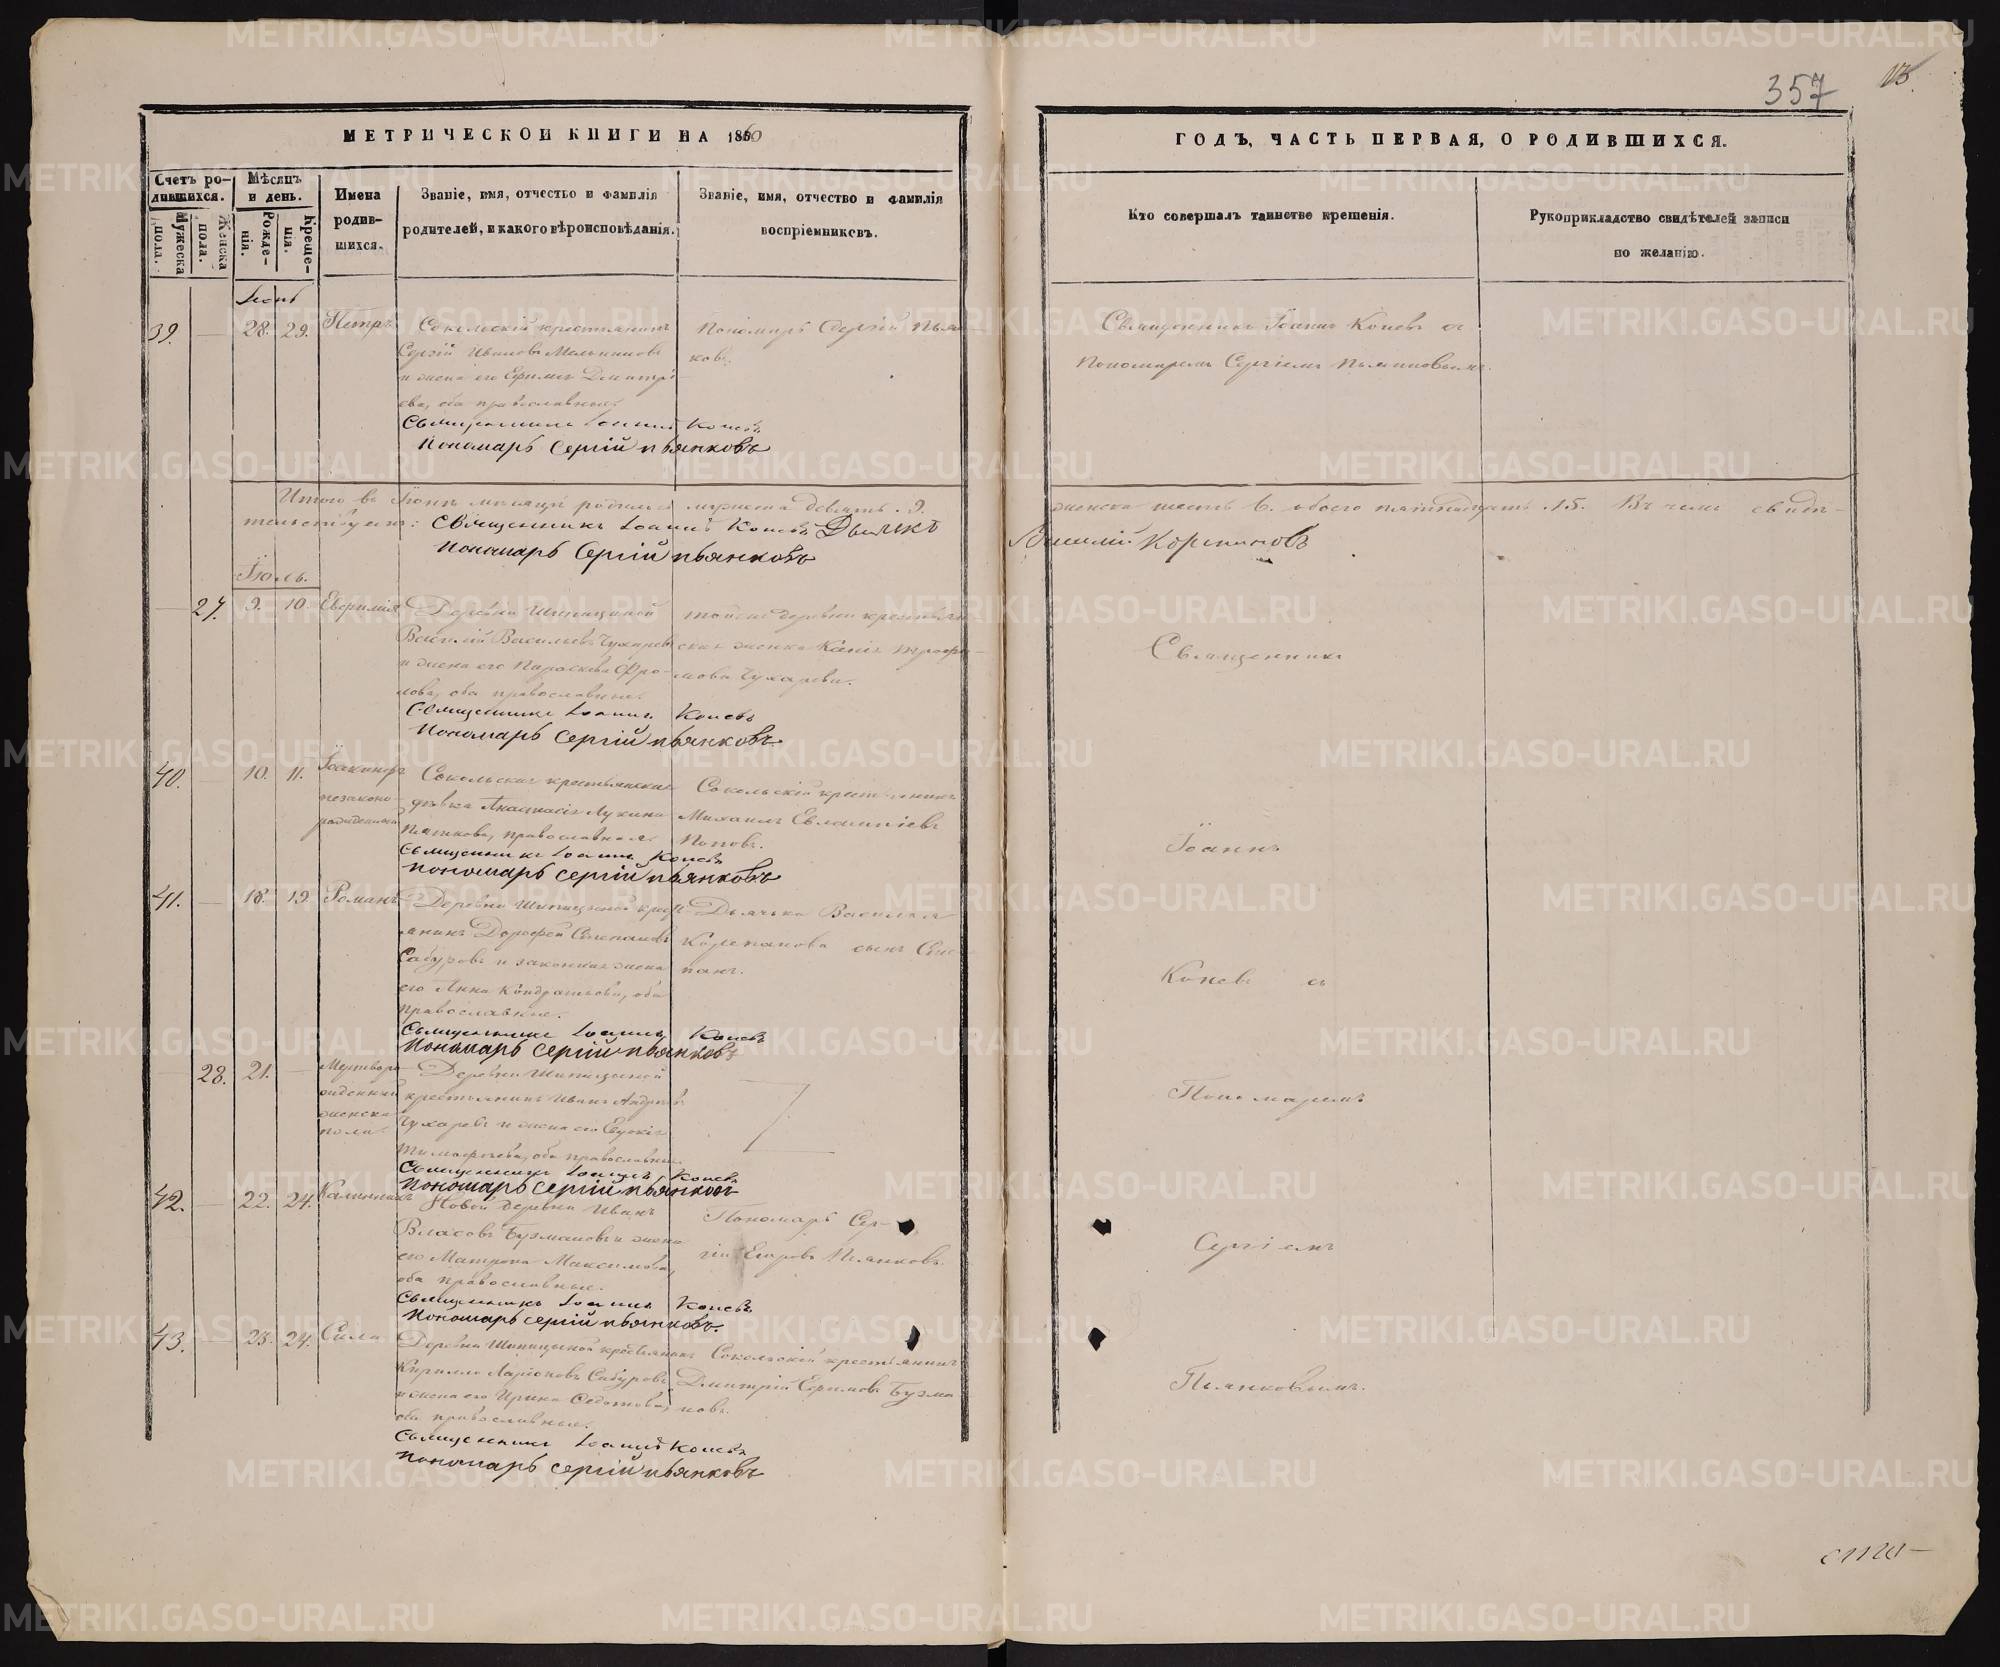 357
13
МЕТРИЧЕСКОЙ КНИГИ НА 1860
ГОДЪ, ЧАСТЬ ПЕРВАЯ, О РОДИВШИХСЯ.
Счетъ родившихся.
Мужеска пола.
Женска пола.
Мѣсяцъ и день.
Рожденія.
Крещенія.
Имена родившихся.
Званіе, имя, отчество и фамилія
родителей, и какого вѣроисповѣданія.
Званіе, имя, отчество и фамилія
воспріемниковъ.
Кто совершалъ таинство крещенія.
Рукоприкладство свидѣтелей записи
по желанію.
Іюнь
39. — 28. 29. Петръ
Сокольскій крестьянинъ
Сергій Ивановъ Мельниковъ
и жена его Ефимія Дмитрі-
ева, оба православные.
Пономарь Сергій Пьян-
ковъ.
Священникъ Іоаннъ Коневъ съ
Пономаремъ Сергіемъ Пьянковымъ.
Священникъ Іоаннъ Коневъ
Пономарь Сергій Пьянковъ
Итого въ Іюнѣ мѣсяцѣ родилось мужеска девять 9.
женска шесть 6. обоего пятнадцать 15. Въ чемъ свидѣ-
тельствуемъ: Священникъ Іоаннъ Коневъ Дьячекъ
Василій Корепановъ
Пономарь Сергій Пьянковъ
Іюль.
— 27. 9. 10. Евфимія
Деревни Шипицыной
Василій Васильевъ Чухаревъ
и жена его Параскева Фро-
лова, оба православные.
той же деревни крестьян-
ская женка Трофи-
мова Чухарева.
Священникъ
Священникъ Іоаннъ Коневъ
Пономарь Сергій Пьянковъ
40. — 10. 11. Іоакинфъ
незаконо-
рожденный
Сокольская крестьянская
дѣвка Анастасія Лукина
Пяткова, православная.
Сокольскій крестьянинъ
Михаилъ Евлампіевъ
Поповъ.
Іоаннъ
Священникъ Іоаннъ Коневъ
Пономарь Сергій Пьянковъ
41. — 18. 19. Романъ
Деревни Шипицыной крест-
янинъ Дорофей Степановъ
Сабуровъ и законная жена
его Анна Кондратьева, оба
православные.
Дьячка Василія
Корепанова сынъ Сте-
панъ.
Коневъ съ
Священникъ Іоаннъ Коневъ
Пономарь Сергій Пьянковъ
— 28. 21. — Мертворо-
жденный
женска
пола
Деревни Шипицыной
крестьянинъ Иванъ Андреевъ
Чухаревъ и жена его Евдокія
Тимофеева, оба православные.
Пономаремъ
Священникъ Іоаннъ Коневъ
Пономарь Сергій Пьянковъ
42. — 22. 24. Каллиникъ
Новой деревни Иванъ
Власовъ Бузмаковъ и жена
его Матрона Максимова,
оба православные.
Пономарь Сер-
гій Егоровъ Пьянковъ.
Сергіемъ
Священникъ Іоаннъ Коневъ
Пономарь Сергій Пьянковъ.
43. — 23. 24. Сила
Деревни Шипицыной крестьянинъ
Кирилло Ларіоновъ Сабуровъ
и жена его Ирина Федотова,
оба православные.
Сокольскій крестьянинъ
Дмитрій Ефимовъ Бузма-
ковъ.
Пьянковымъ.
Священникъ Іоаннъ Коневъ
Пономарь Сергій Пьянковъ
METRIKI.GASO-URAL.RU